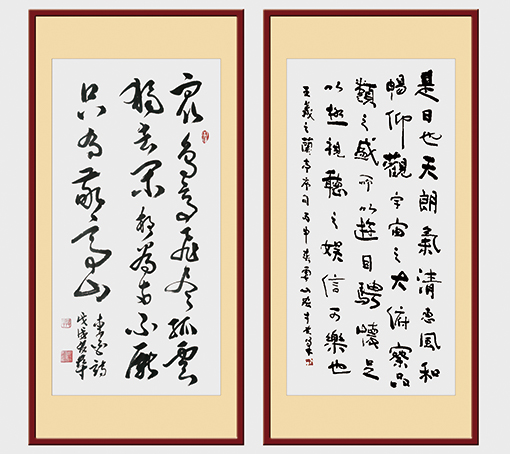 眾鳥高飛盡孤雲
獨去閑相看兩不厭
只有敬亭山
李白詩
戊戌
是日也天朗氣清惠風和
暢仰觀宇宙之大俯察品
類之盛所以遊目騁懷足
以極視聽之娛信可樂也
王羲之蘭亭序句丙申